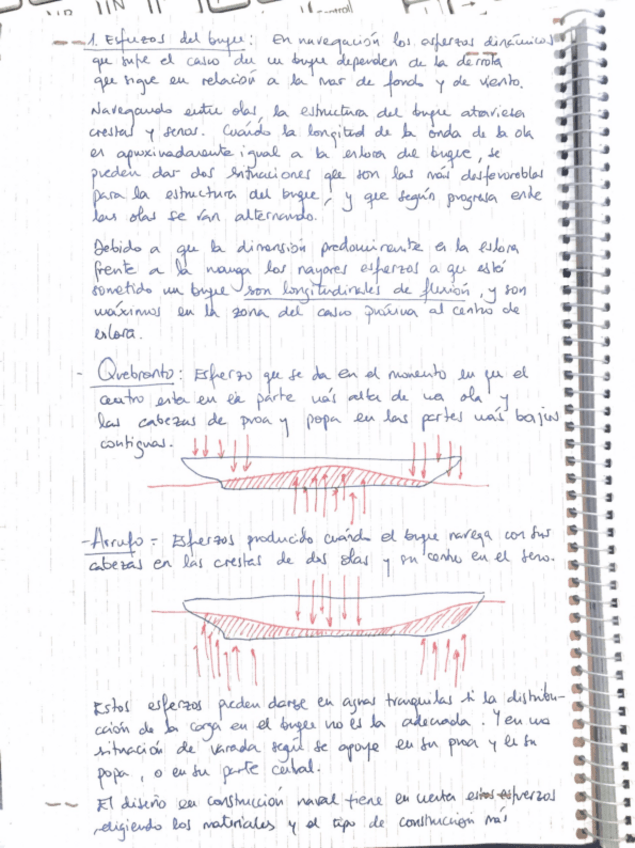 1. Esfuerzos del buque: En navegación los esfuerzos dinámicos
que sufre el casco de un buque dependen de la derrota
que sigue en relación a la mar de fondo y de viento.
Navegando entre olas, la estructura del buque atraviesa
crestas y senos. Cuándo la longitud de la onda de la ola
es aproximadamente igual a la eslora del buque, se
pueden dar dos situaciones que son las más desfavorables
para la estructura del buque, y que según progresa entre
las olas se van alternando.
Debido a que la dimensión predominante es la eslora
frente a la manga los mayores esfuerzos a que está
sometido un buque son longitudinales de flexión, y son
máximos en la zona del casco próxima al centro de
eslora.
- Quebranto: Esfuerzo que se da en el momento en que el
centro esta en la parte más alta de una ola y
las cabezas de proa y popa en las partes más bajas
contiguas.
- Arrufo = Esfuerzos producido cuándo el buque navega con sus
cabezas en las crestas de dos olas y su centro en el seno.
Estos esfuerzos pueden darse en aguas tranquilas si la distribu-
ción de la carga en el buque no es la adecuada. Y en una
situación de varada según se apoye en su proa y en su
popa, o en su parte central.
El diseño en construcción naval tiene en cuenta estos esfuerzos
eligiendo los materiales y el tipo de construcción más